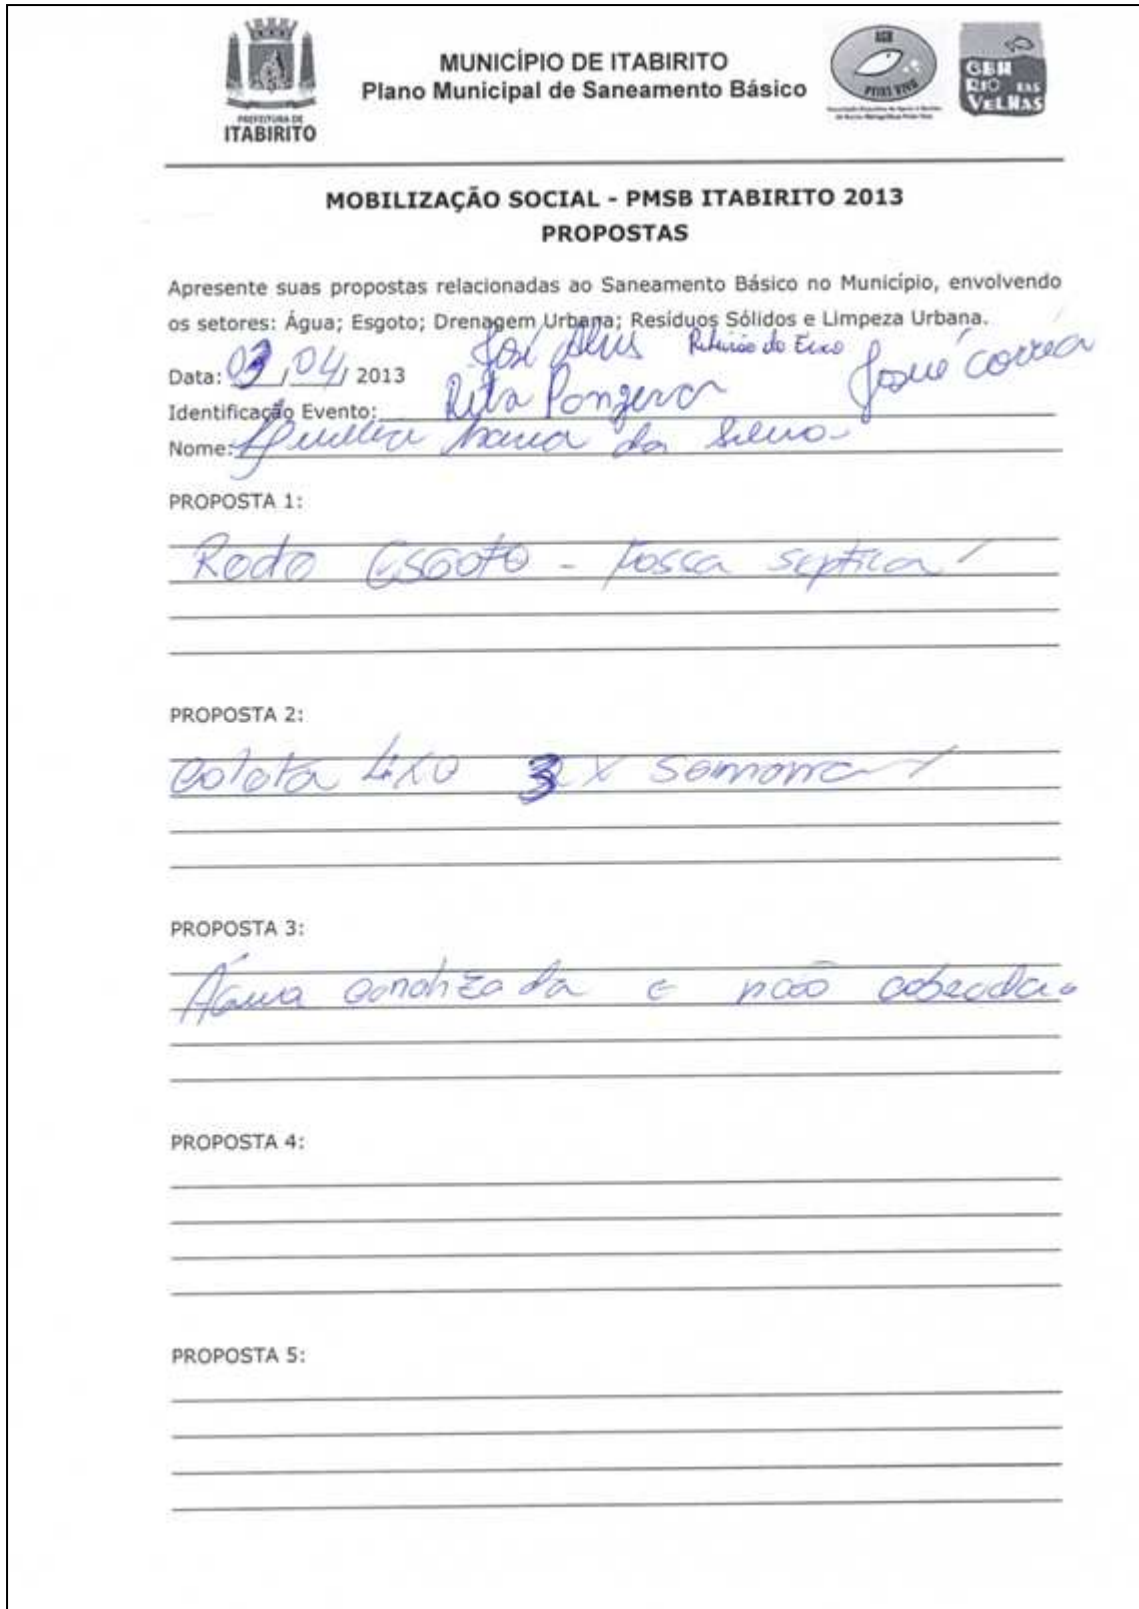 MUNICÍPIO DE ITABIRITO
Plano Municipal de Saneamento Básico
PREFEITURA DE
ITABIRITO
AGB
PEIXE VIVO
CBH
RIO DAS
VELHAS
MOBILIZAÇÃO SOCIAL - PMSB ITABIRITO 2013
PROPOSTAS
Apresente suas propostas relacionadas ao Saneamento Básico no Município, envolvendo
os setores: Água; Esgoto; Drenagem Urbana; Resíduos Sólidos e Limpeza Urbana.
José Alves Ribeirão do Eixo Josué Correa
Data: 03/04/ 2013
Identificação Evento: Rita
Nome: Maria da Silva
PROPOSTA 1:
Rede Esgoto - Fossa septica
PROPOSTA 2:
Coleta Lixo 3 X Semana
PROPOSTA 3:
Água canalizada e não cobrada.
PROPOSTA 4:
PROPOSTA 5: